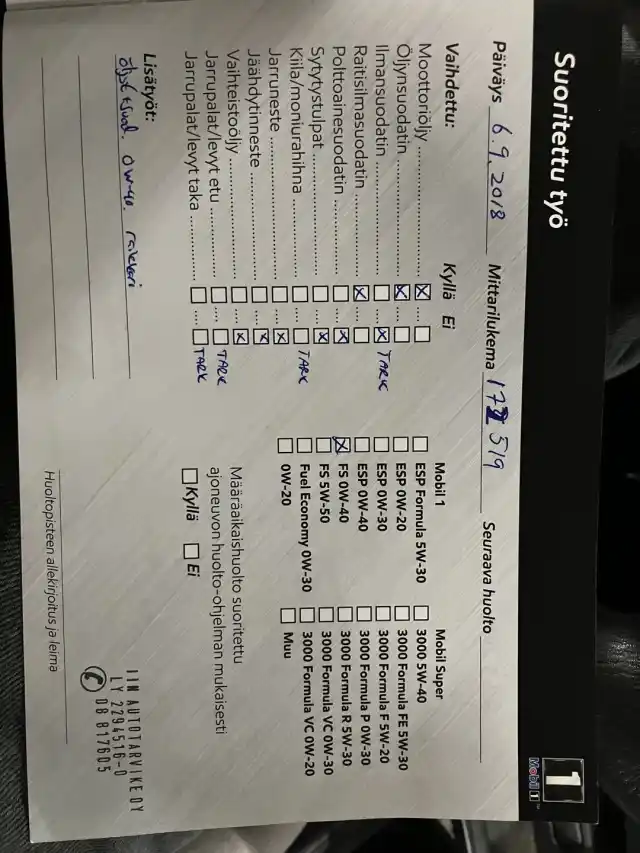 Suoritettu työ
1
Mobil 1
Päiväys 6.9.2018 Mittarilukema 172 519 Seuraava huolto
Vaihdettu: Kyllä Ei
Moottoriöljy
Öljynsuodatin
Ilmansuodatin TARK
Raitisilmasuodatin
Polttoainesuodatin
Sytytystulpat
Kiila/moniurahihna TARK
Jarruneste
Jäähdytinneste
Vaihteistoöljy
Jarrupalat/levyt etu TARK
Jarrupalat/levyt taka TARK
Mobil 1
ESP Formula 5W-30
ESP 0W-20
ESP 0W-30
ESP 0W-40
FS 0W-40
FS 5W-50
Fuel Economy 0W-30
0W-20
Mobil Super
3000 5W-40
3000 Formula FE 5W-30
3000 Formula F 5W-20
3000 Formula P 0W-30
3000 Formula R 5W-30
3000 Formula VC 0W-30
3000 Formula VC 0W-20
Muu
Määräaikaishuolto suoritettu
ajoneuvon huolto-ohjelman mukaisesti
Kyllä Ei
Lisätyöt:
0W-40.
IIN AUTOTARVIKE OY
LY 2294516-0
08 817605
Huoltopisteen allekirjoitus ja leima